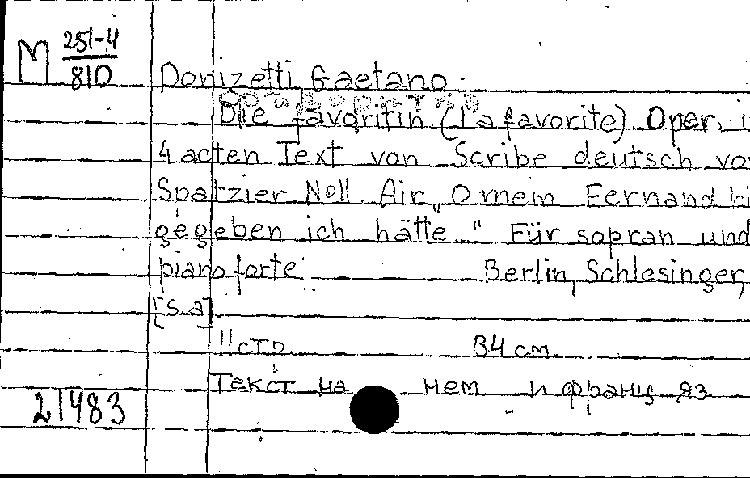 M 251-4
810
Donizetti, Gaetano.
Die favoritin (La favorite) Oper, i
4 acten Text von Scribe deutsch vo
Spatzier No11. Air „O mein Eernand hi
gegeben ich hätte." Für sopran und
pianoforte Berlin, Schlesinger,
[s.a]
11 стр 34 см
Текст на нем и франц яз
21483